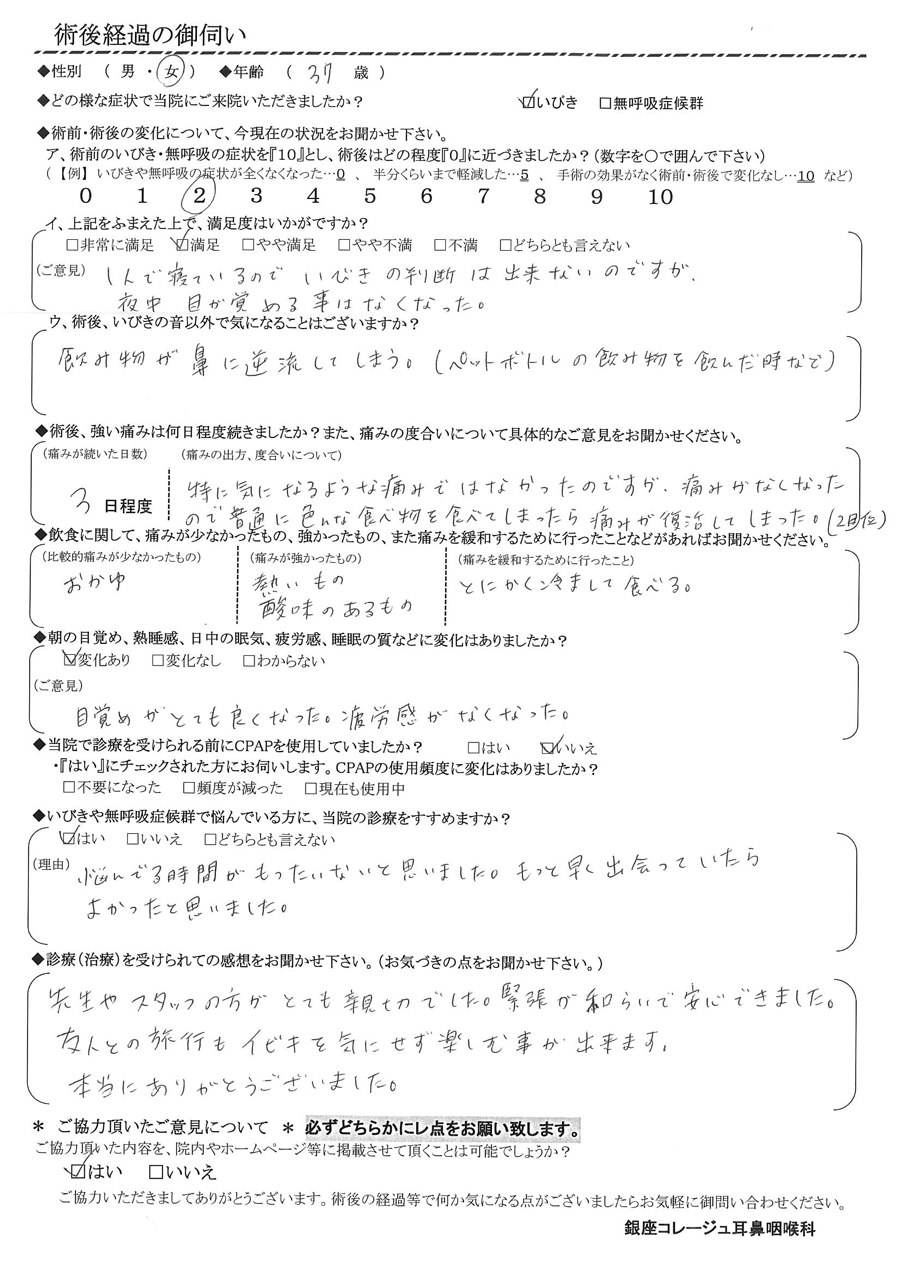 術後経過の御伺い
◆性別 （ 男 ・ 女 ） ◆年齢 （ 37 歳 ）
◆どの様な症状で当院にご来院いただきましたか？ ☑いびき □無呼吸症候群
◆術前・術後の変化について、今現在の状況をお聞かせ下さい。
ア、術前のいびき・無呼吸の症状を『10』とし、術後はどの程度『0』に近づきましたか？（数字を〇で囲んで下さい）
（ 【例】 いびきや無呼吸の症状が全くなくなった…0 、 半分くらいまで軽減した…5 、 手術の効果がなく術前・術後で変化なし…10 など）
0 1 2 3 4 5 6 7 8 9 10
イ、上記をふまえた上で、満足度はいかがですか？
□非常に満足 ☑満足 □やや満足 □やや不満 □不満 □どちらとも言えない
（ご意見） 1人で寝ているので いびきの判断は出来ないのですが、
夜中 目が覚める事はなくなった。
ウ、術後、いびきの音以外で気になることはございますか？
飲み物が鼻に逆流してしまう。（ペットボトルの飲み物を飲んだ時など）
◆術後、強い痛みは何日程度続きましたか？また、痛みの度合いについて具体的なご意見をお聞かせください。
（痛みが続いた日数） （痛みの出方、度合いについて）
3 日程度 特に気になるような痛みではなかったのですが、痛みがなくなった
ので普通に色んな食べ物を食べてしまったら痛みが復活してしまった。（2回位）
◆飲食に関して、痛みが少なかったもの、強かったもの、また痛みを緩和するために行ったことなどがあればお聞かせください。
（比較的痛みが少なかったもの） （痛みが強かったもの） （痛みを緩和するために行ったこと）
おかゆ 熱いもの とにかく冷まして食べる。
酸味のあるもの
◆朝の目覚め、熟睡感、日中の眠気、疲労感、睡眠の質などに変化はありましたか？
☑変化あり □変化なし □わからない
（ご意見）
目覚めがとても良くなった。疲労感がなくなった。
◆当院で診療を受けられる前にCPAPを使用していましたか？ □はい ☑いいえ
・『はい』にチェックされた方にお伺いします。CPAPの使用頻度に変化はありましたか？
□不要になった □頻度が減った □現在も使用中
◆いびきや無呼吸症候群で悩んでいる方に、当院の診療をすすめますか？
☑はい □いいえ □どちらとも言えない
（理由） 悩んでる時間がもったいないと思いました。もっと早く出会っていたら
よかったと思いました。
◆診療（治療）を受けられての感想をお聞かせ下さい。（お気づきの点をお聞かせ下さい。）
先生やスタッフの方がとても親切でした。緊張が和らいで安心できました。
友人との旅行もイビキを気にせず楽しむ事が出来ます。
本当にありがとうございました。
＊ ご協力頂いたご意見について ＊ 必ずどちらかにレ点をお願い致します。
ご協力頂いた内容を、院内やホームページ等に掲載させて頂くことは可能でしょうか？
☑はい □いいえ
ご協力いただきましてありがとうございます。術後の経過等で何か気になる点がございましたらお気軽に御問い合わせください。
銀座コレージュ耳鼻咽喉科